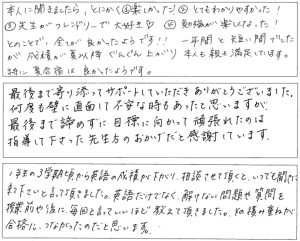 本人に聞きましたら、とにかく①楽しかった！②とてもわかりやすかった！
③先生がフレンドリーで大好き♡ ④勉強が楽しくなった！
とのことで、全てが良かったようです！！ 一年間と短い間でした
が成績が夏以降ぐんぐん上がり 本人も親も満足しています。
特に夏合宿は良かったようです。
最後まで寄り添ってサポートしていただきありがとうございました。
何度も壁に直面して不安な時もあったと思いますが、
最後まで諦めずに目標に向かって頑張れたのは
指導して下さった先生方のおかげだと感謝しています。
1年生の3学期頃から英語の成績が下がり、相談させて頂くと、いつでも聞きに
来て下さいと言って頂きました。英語だけでなく、解けない問題や質問を
授業前や後に、毎回と言っていいほど教えて頂きました。その積み重ねが
合格に、つながったのだと思います。